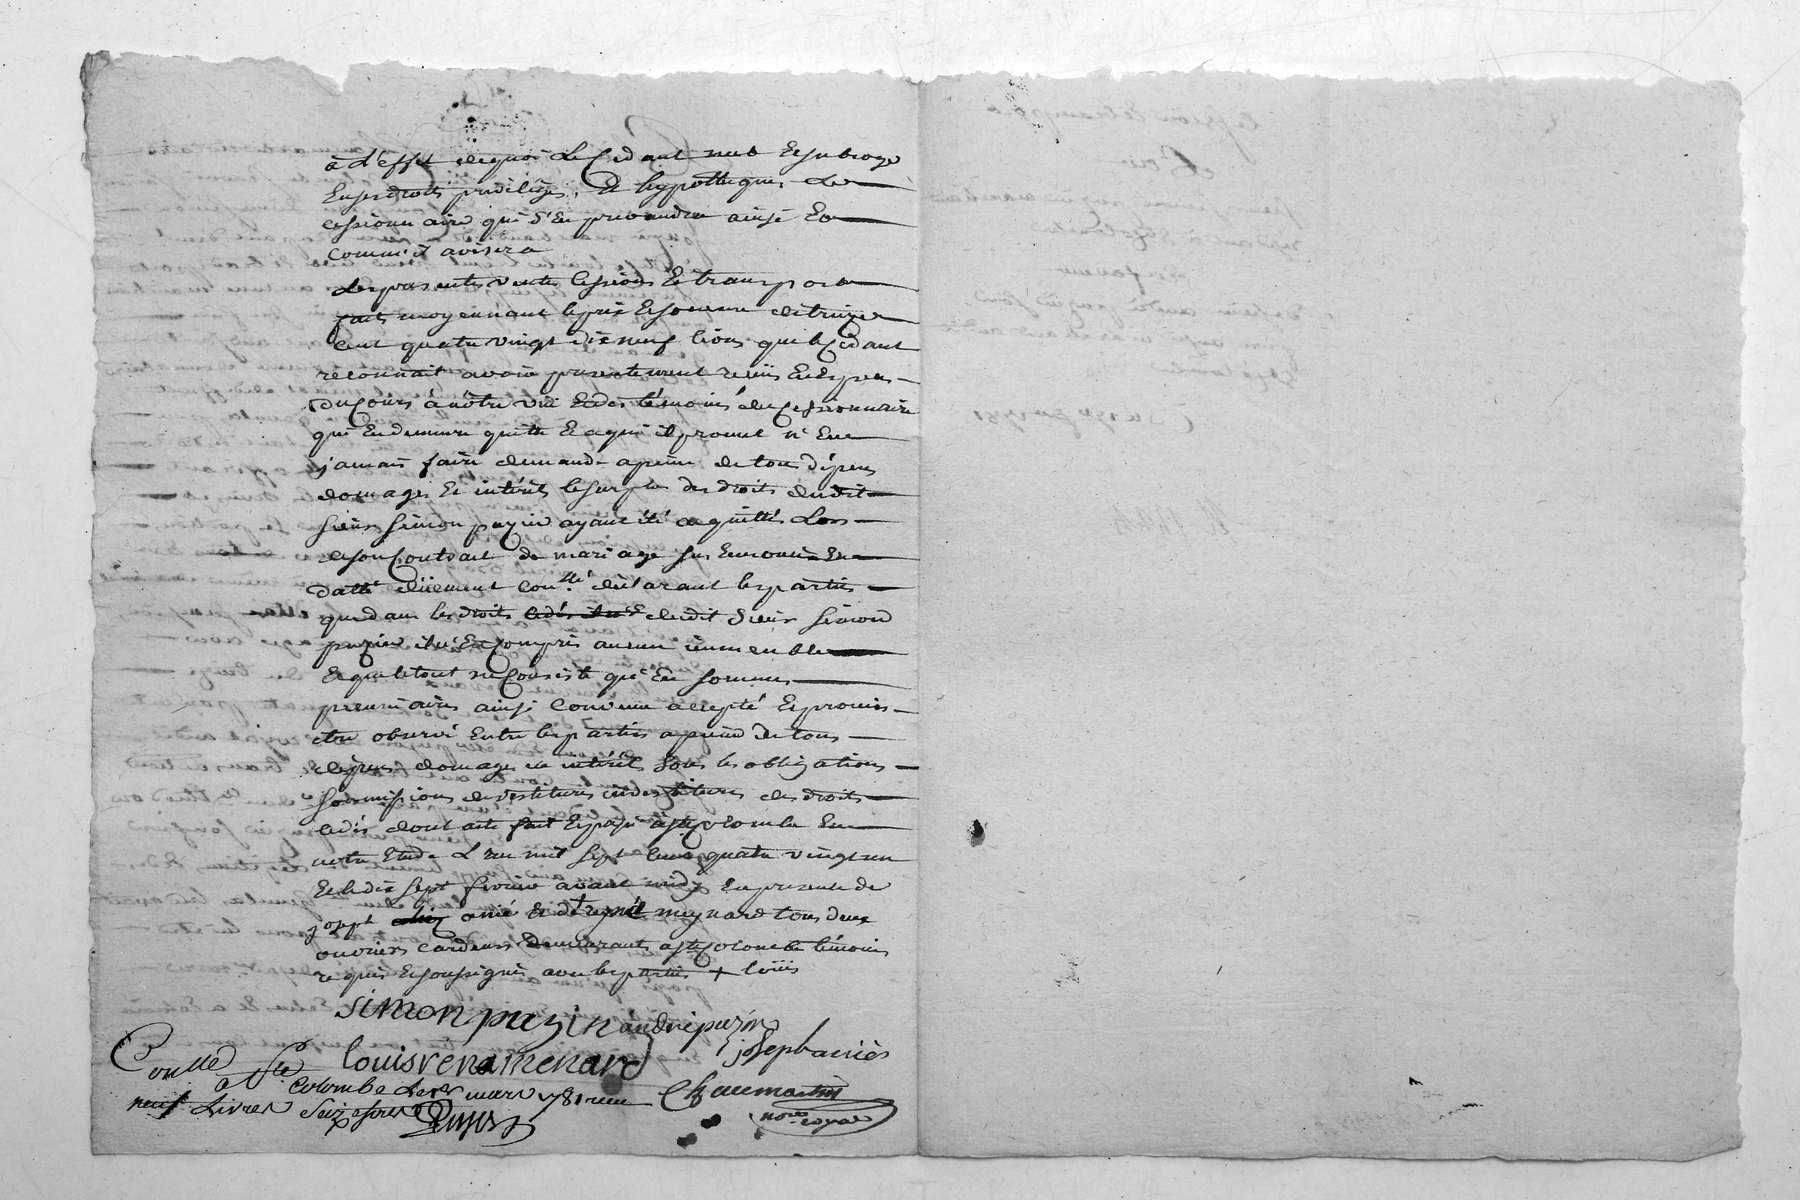 à L'effet dequoi Le Cedant met Esubroge
En ses droits privilèges, Et hypotheques Le
cessionnaire qui s'En prevaudra ainsi Et
comm'il avisera
Les presentes ventes Cessions Et transport
faits moyennant le prix Et somme de treize
cent quatre vingt dix neuf livres que le Cedant
reconnait avoir presentement reçus En Especes
Du Cours à nôtre vüe Et des témoins du Cessionnaire
qui En demeure quitte Et a qui il promet n'En
jamais faire demande a peine de tous dépens
domages Et intérêts le surplus des droits dudit
Sieur Simon puzin ayant été acquittés Lors
de son Contrait de mariage sus Ennoncé En
datte düement con.llé déclarant les parties
que dans les droits du dit Sieur Simon
puzin il n'Est Compris aucun immeuble
Et que le tout ne Consiste qu'En sommes
pecuniaires ainsi Convenu accepté Et promis
être observé Entre les parties a peine de tous
dépens domages et intérêts sous les obligations
soumissions des droits
cédés dont acte fait Et passé à Ste Colombe En
notre Etude L'an mil sept Cent quatre vingt un
Et le dix sept fevrier avant midy En presence de
joseph arriés Et + rené meynard tous deux
ouvriers cardeurs demeurants a Ste Colombe témoins
requis Et soussignés avec les parties + loüis
simon puzin andré puzin
louis rena menard joseph arriès
Conlle a Ste Colombe Le 1er mars 1781 recu
neuf Livres Seize sous
Chaumartin
nore royal